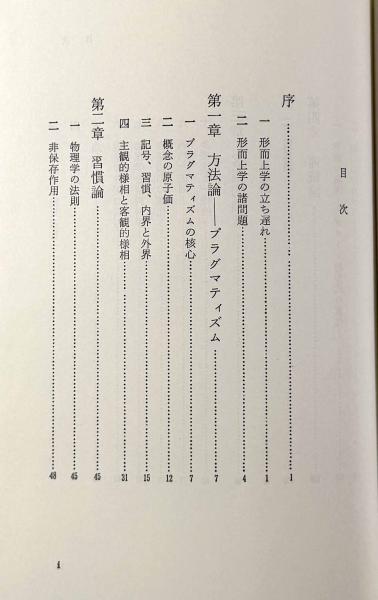 目次
序……………………1
一 形而上学の立ち遅れ……………………1
二 形而上学の諸問題……………………4
第一章 方法論――プラグマティズム……………………7
一 プラグマティズムの核心……………………7
二 概念の原子価……………………12
三 記号、習慣、内界と外界……………………15
四 主観的様相と客観的様相……………………31
第二章 習慣論……………………45
一 物理学の法則……………………45
二 非保存作用……………………48
i